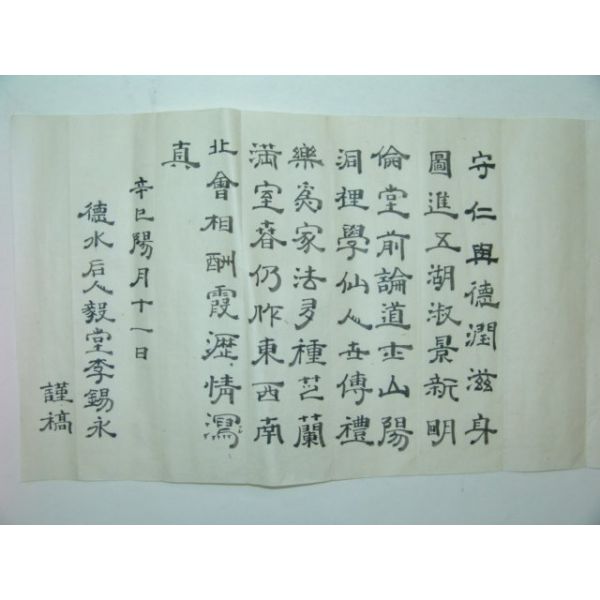 守仁與德潤滋身
圖進五湖淑景新明
倫堂前論道士山陽
洞裡學仙人世傳禮
樂爲家法多種芝蘭
滿室春仍作東西南
北會相酬霞瀝情瀉
真
辛巳陽月十一日
德水后人毅堂李錫永
謹稿